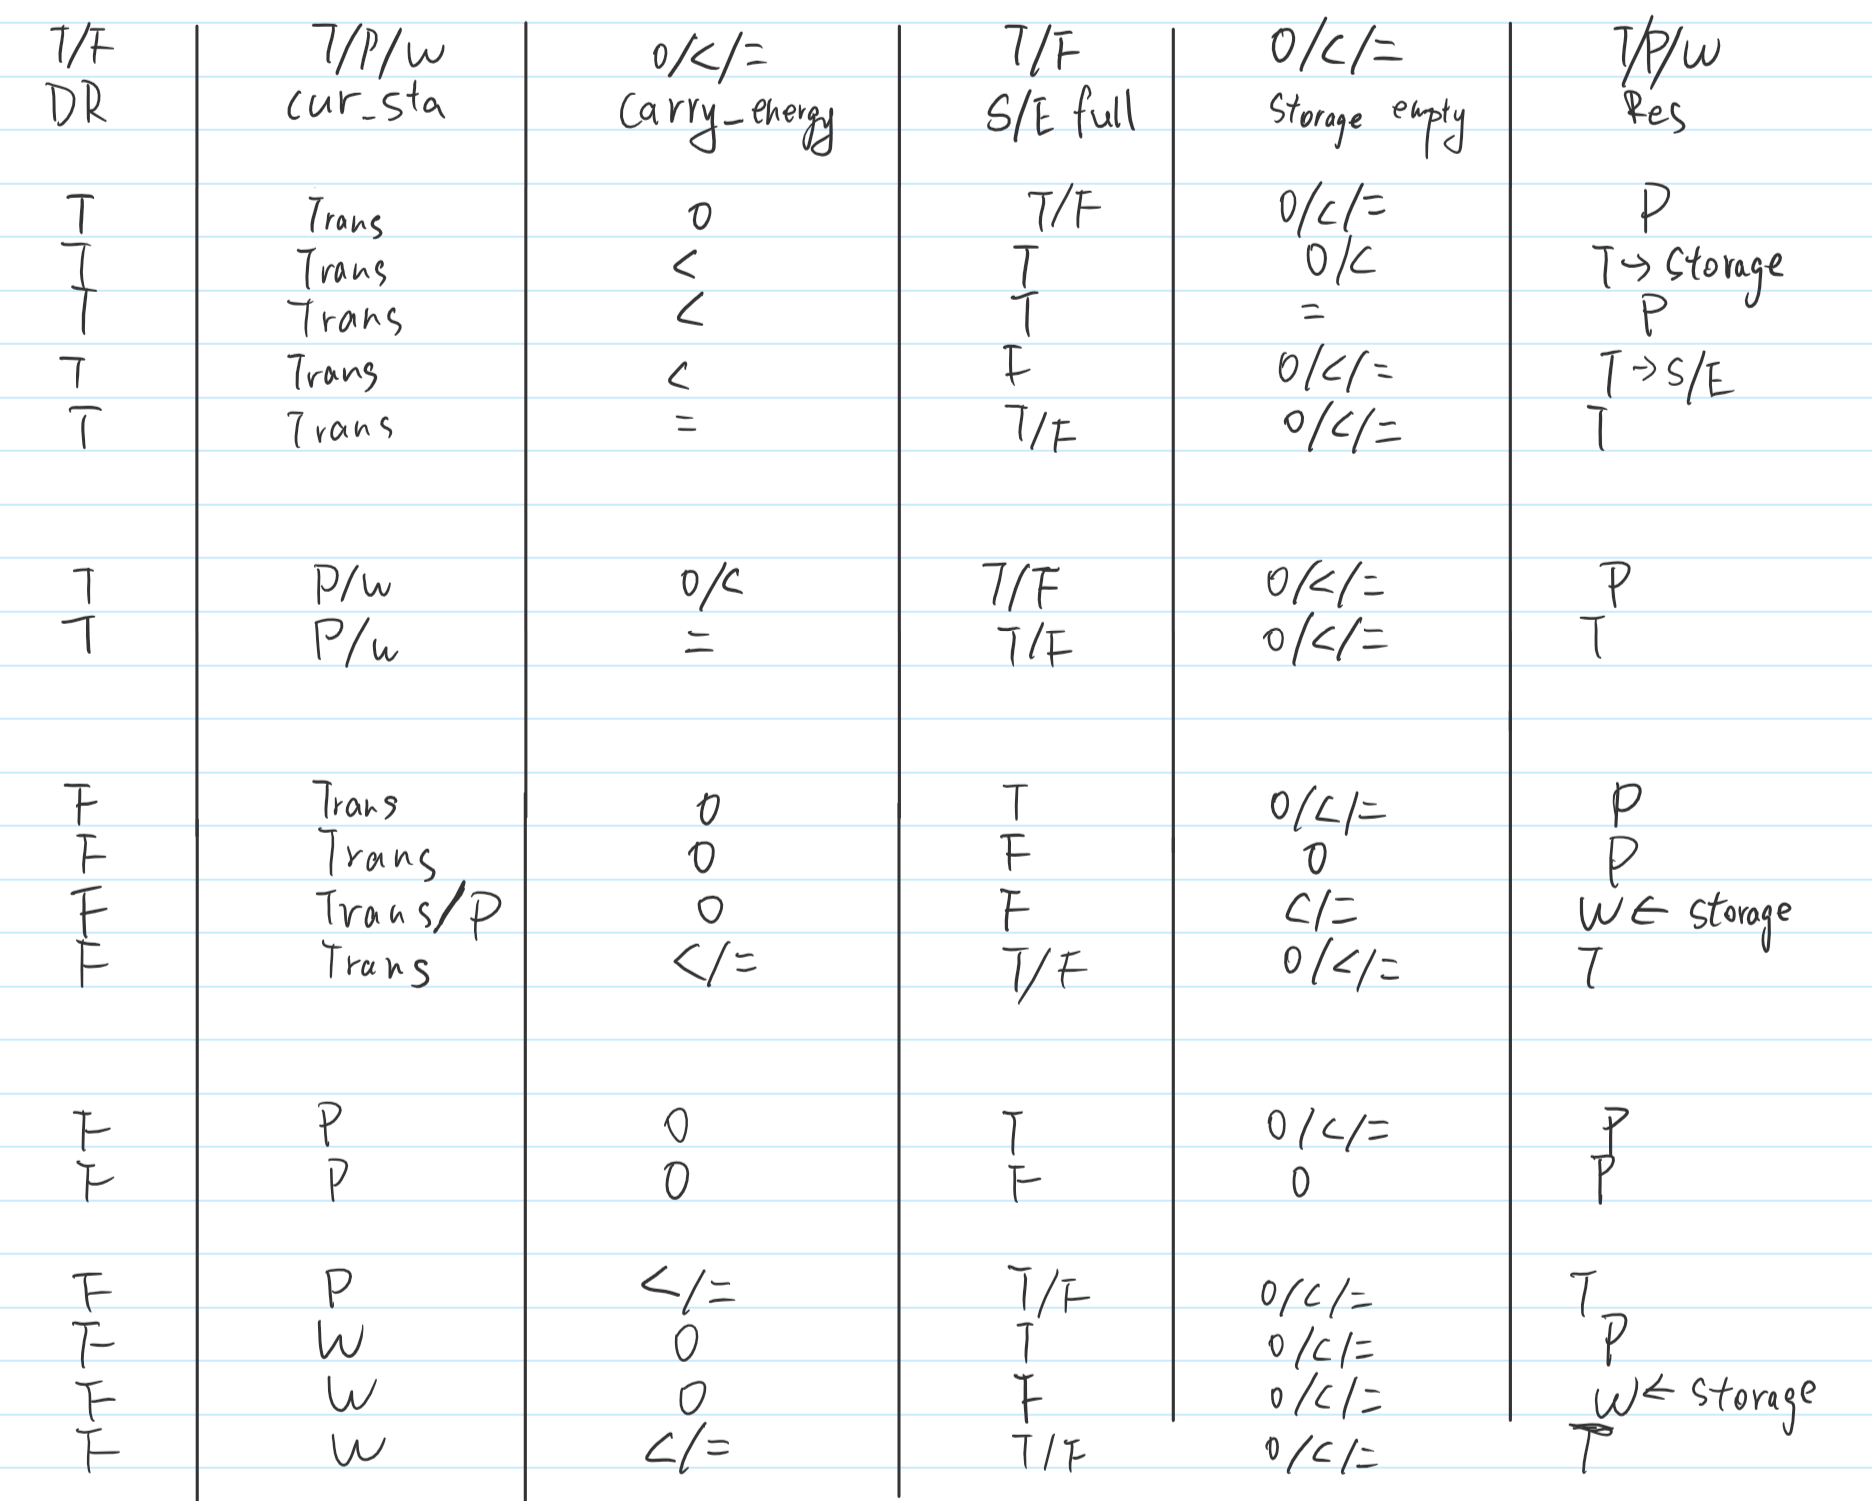 T/F T/P/W 0/</= T/F 0/</= T/P/W
DR cur_sta Carry_energy S/E full Storage empty Res
T Trans 0 T/F 0/</= P
T Trans < T 0/< T→Storage
T Trans < T = P
T Trans < F 0/</= T→S/E
T Trans = T/F 0/</= T
T P/W 0/< T/F 0/</= P
T P/W = T/F 0/</= T
F Trans 0 T 0/</= P
F Trans 0 F 0 P
F Trans/P 0 F </= W← Storage
F Trans </= T/F 0/</= T
F P 0 T 0/</= P
F P 0 F 0 P
F P </= T/F 0/</= T
F W 0 T 0/</= P
F W 0 F 0/</= W← Storage
F W </= T/F 0/</= T